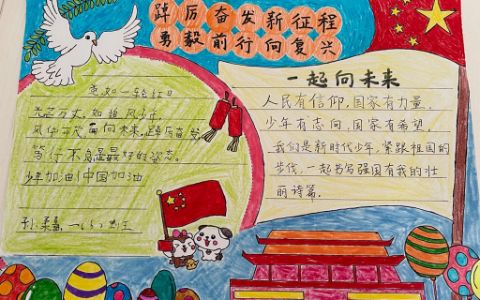 踔厉奋发新征程
勇毅前行向复兴
竞如一轻红日
光芒万丈,如追风少年,
风华正茂,面向未来,踔厉奋发
笃行不怠是最好的姿态。
少年加油!中国加油
一起向未来
人民有信仰,国家有力量,
少年有志向,国家有希望。
我们是新时代少年,紧跟祖国的
步伐,一起书写强国有我的壮
丽诗篇。